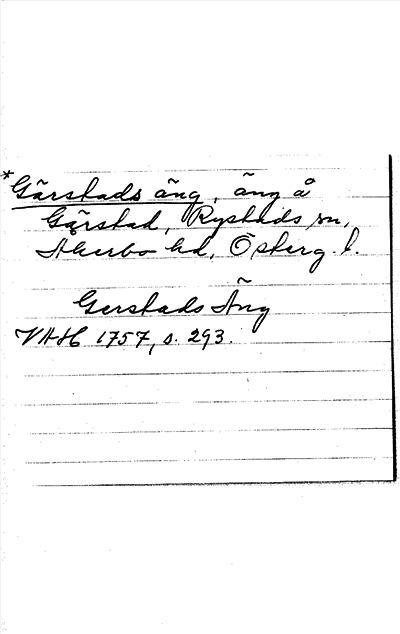 *Gärstads äng, äng å
Gärstad, Rystads sn,
Åkerbo hd, Österg. l.
Gerstads Äng
VAH 1757, s. 293.